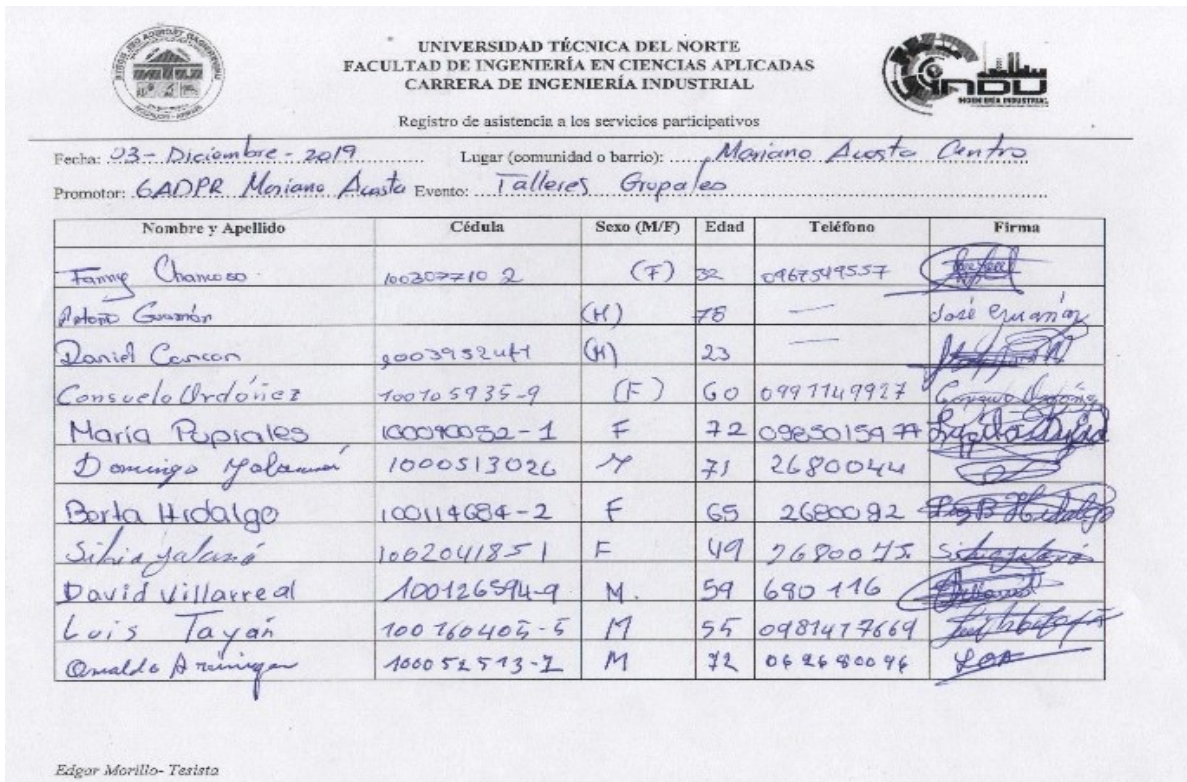 UNIVERSIDAD TÉCNICA DEL NORTE
FACULTAD DE INGENIERÍA EN CIENCIAS APLICADAS
CARRERA DE INGENIERÍA INDUSTRIAL
INDU
INGENIERÍA INDUSTRIAL
Registro de asistencia a los servicios participativos
Fecha: 03-Diciembre-2019 Lugar (comunidad o barrio): Mariano Acosta Centro
Promotor: GADPR Mariano Acosta Evento: Talleres Grupales
Nombre y Apellido Cédula Sexo (M/F) Edad Teléfono Firma
Fanny 100307710 2 (F) 32 0967549557
Guamán (H) 78 — José Guamán
Daniel (H) 23 —
Consuelo Ordóñez 100105935-9 (F) 60 0997149927 Consuelo Ordóñez
María Pupiales 100090052-1 F 72
Domingo 1000513026 M 71 2680044
Berta Hidalgo 100114684-2 F 65 2680092 B Hidalgo
1002041851 F 49 2680075
David Villarreal 100126594-9 M. 59 680 116
Luis Tayán 100160405-5 M 55 0981477669
Osvaldo 100052513-7 M 72 062680096 LOA
Edgar Morillo- Tesista